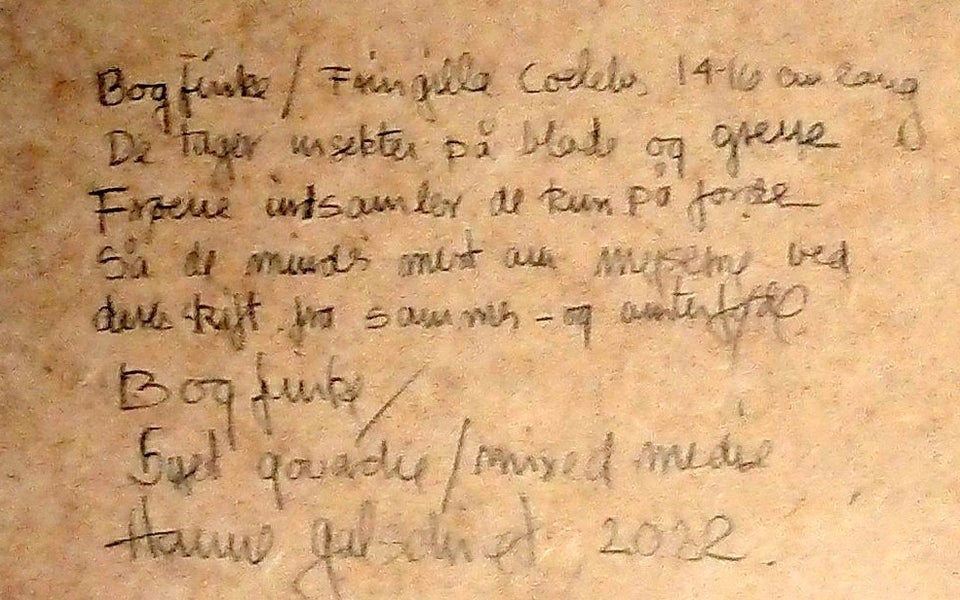 Bogfinke / Fringilla Coelebs, 14-16 cm lang
De tager insekter på blade og grene
Frøene indsamler de kun på jorden
Så de minds mest om ved
deres skift fra sommer - og vinterføde
Bogfinke /
gouache / mixed media
Hanne 2022